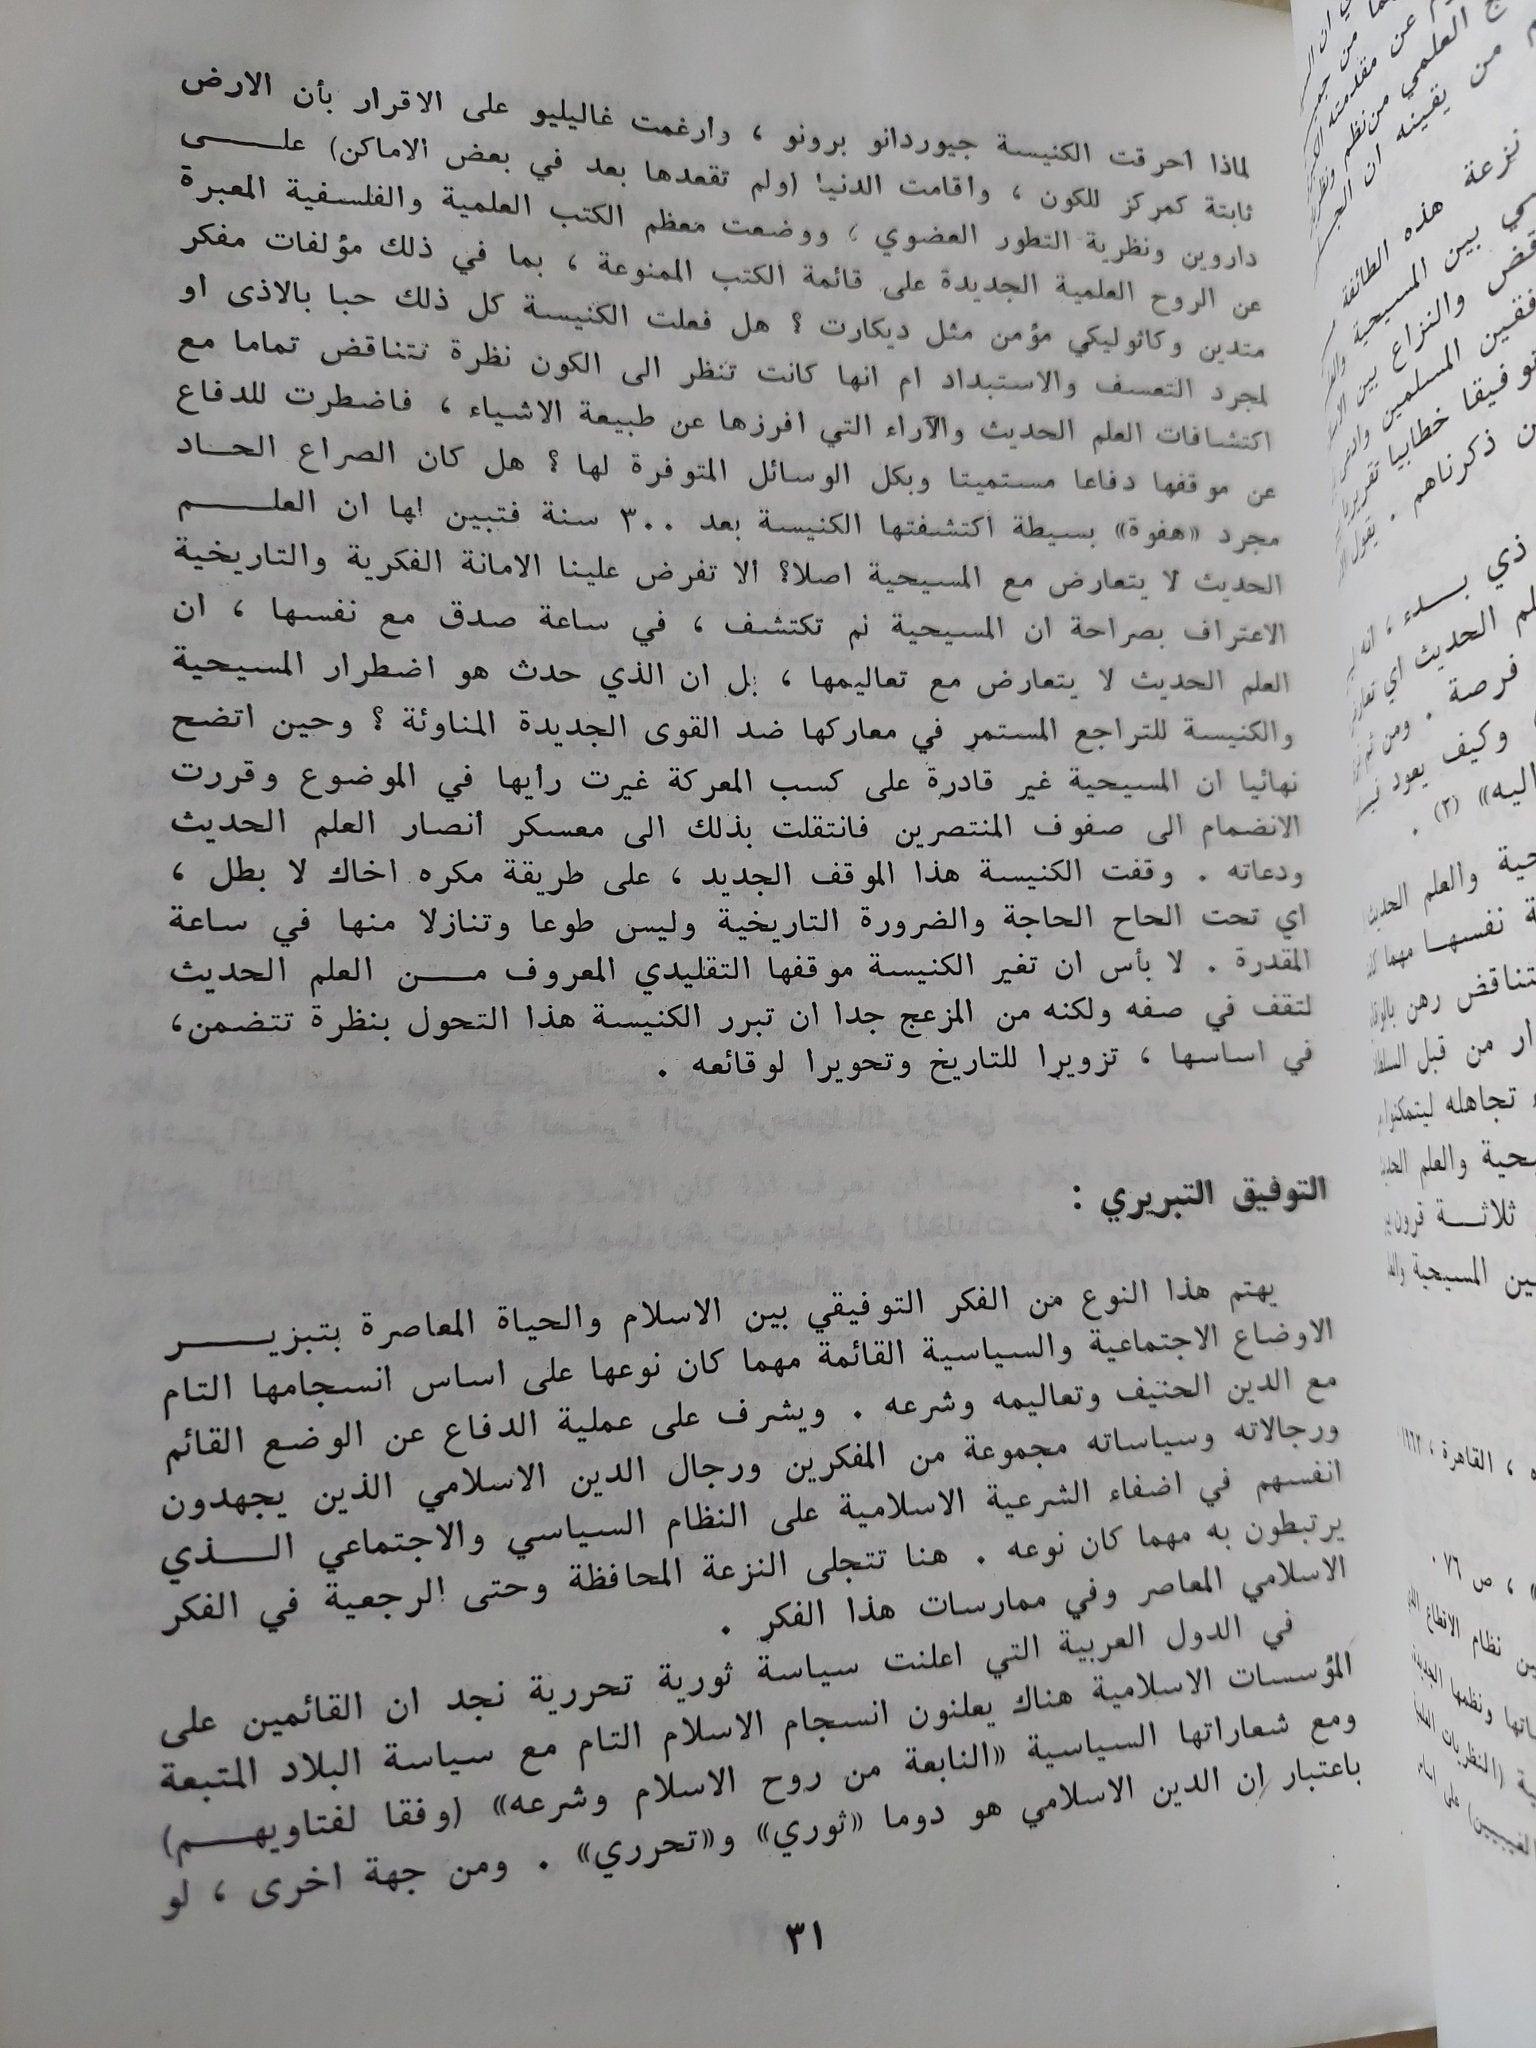 لماذا احرقت الكنيسة جيوردانو برونو ، وارغمت غاليليو على الاقرار بأن الارض
ثابتة كمركز للكون ، واقامت الدنيا (ولم تقعدها بعد في بعض الاماكن) على
داروين ونظرية التطور العضوي ، ووضعت معظم الكتب العلمية والفلسفية المعبرة
عن الروح العلمية الجديدة على قائمة الكتب الممنوعة ، بما في ذلك مؤلفات مفكر
متدين وكاثوليكي مؤمن مثل ديكارت ؟ هل فعلت الكنيسة كل ذلك حبا بالاذى او
لمجرد التعسف والاستبداد ام انها كانت تنظر الى الكون نظرة تتناقض تماما مع
اكتشافات العلم الحديث والآراء التي افرزها عن طبيعة الاشياء ، فاضطرت للدفاع
عن موقفها دفاعا مستميتا وبكل الوسائل المتوفرة لها ؟ هل كان الصراع الحاد
مجرد «هفوة» بسيطة اكتشفتها الكنيسة بعد ٣٠٠ سنة فتبين لها ان العلم
الحديث لا يتعارض مع المسيحية اصلا؟ الا تفرض علينا الامانة الفكرية والتاريخية
الاعتراف بصراحة ان المسيحية لم تكتشف ، في ساعة صدق مع نفسها ، ان
العلم الحديث لا يتعارض مع تعاليمها ، بل ان الذي حدث هو اضطرار المسيحية
والكنيسة للتراجع المستمر في معاركها ضد القوى الجديدة المناوئة ؟ وحين اتضح
نهائيا ان المسيحية غير قادرة على كسب المعركة غيرت رأيها في الموضوع وقررت
الانضمام الى صفوف المنتصرين فانتقلت بذلك الى معسكر أنصار العلم الحديث
ودعاته . وقفت الكنيسة هذا الموقف الجديد ، على طريقة مكره اخاك لا بطل ،
اي تحت الحاح الحاجة والضرورة التاريخية وليس طوعا وتنازلا منها في ساعة
المقدرة . لا بأس ان تغير الكنيسة موقفها التقليدي المعروف من العلم الحديث
لتقف في صفه ولكنه من المزعج جدا ان تبرر الكنيسة هذا التحول بنظرة تتضمن،
في اساسها ، تزويرا للتاريخ وتحويرا لوقائعه .
التوفيق التبريري :
يهتم هذا النوع من الفكر التوفيقي بين الاسلام والحياة المعاصرة بتبرير
الاوضاع الاجتماعية والسياسية القائمة مهما كان نوعها على اساس انسجامها التام
مع الدين الحنيف وتعاليمه وشرعه . ويشرف على عملية الدفاع عن الوضع القائم
ورجالاته وسياساته مجموعة من المفكرين ورجال الدين الاسلامي الذين يجهدون
انفسهم في اضفاء الشرعية الاسلامية على النظام السياسي والاجتماعي الذي
يرتبطون به مهما كان نوعه . هنا تتجلى النزعة المحافظة وحتى الرجعية في الفكر
الاسلامي المعاصر وفي ممارسات هذا الفكر .
في الدول العربية التي اعلنت سياسة ثورية تحررية نجد ان القائمين على
المؤسسات الاسلامية هناك يعلنون انسجام الاسلام التام مع سياسة البلاد المتبعة
ومع شعاراتها السياسية «النابعة من روح الاسلام وشرعه» (وفقا لفتاويهم)
باعتبار إن الدين الاسلامي هو دوما «ثوري» و«تحرري» . ومن جهة اخرى ، لو
٣١